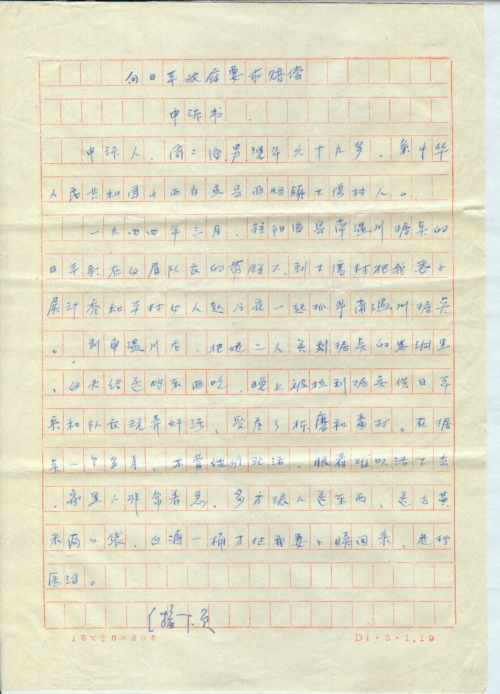 向日军政府要求赔偿
申诉书.
申诉人,男现年六十九岁,系中华
人民共和国山西省盂县西烟镇大村人。
一九四四年三月,驻阳曲县南温川据点的
日军兵在队长的带领下,到大村把我妻子
和本村女人赵乃在一起抓南温川据点
。到南温川后,把她二人关到据点的黑洞里
,白天给送些东西吃,晚上被拉到据点供日军
兵和队长玩弄奸污,受尽了折磨和毒打。在据
点一个多月,不管她们死活,眼看难以活下去
,家里人非常着急,多方派人送东西,送去黄
米两口袋,白酒一桶才把我妻子赎回来,进行
医治。
(接下页
15×20=300 D1·8·1.19